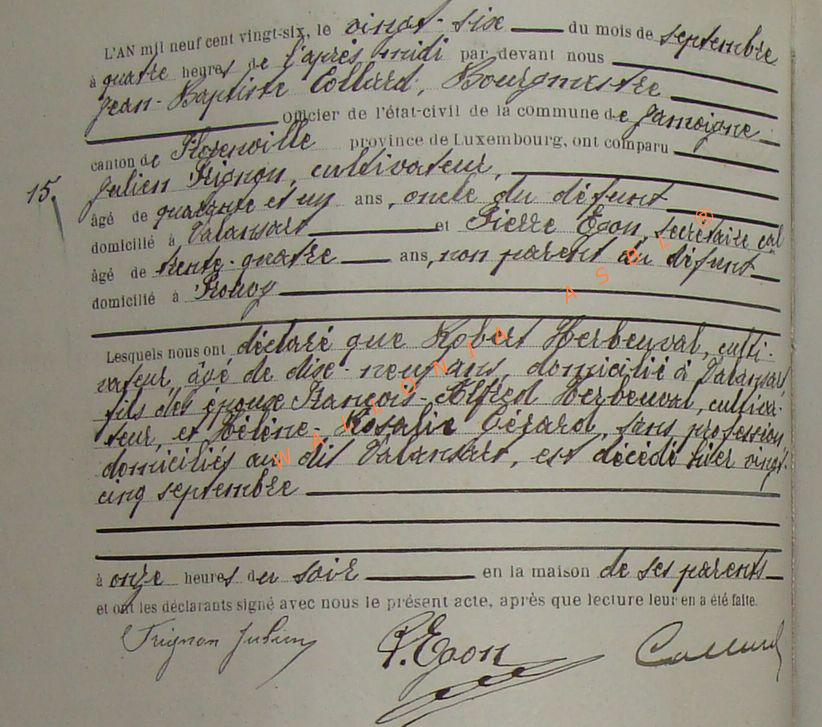 L'AN mil neuf cent vingt-six, le vingt-six du mois de septembre
à quatre heures de l'après-midi par devant nous
Jean-Baptiste Collard, Bourgmestre
Officier de l'état-civil de la commune de Jamoigne
canton de Florenville province de Luxembourg, ont comparu
15. Julien Trignon, cultivateur,
âgé de quarante et un ans, oncle du défunt
domicilié à Valansart et Pierre Egon, secrétaire cal
âgé de trente-quatre ans, non parent du défunt
domicilié à Prouvy
Lesquels nous ont déclaré que Robert Herbeuval, culti-
vateur, âgé de dixe-neuf ans, domicilié à Valansart,
fils des époux François-Alfred Herbeuval, cultiva-
teur, et Hélène-Rosalie Gérard, sans profession,
domiciliés au dit Valansart, est décédé hier vingt-
cinq septembre
à onze heures du soir en la maison de ses parents
et ont les déclarants signé avec nous le présent acte, après que lecture leur en a été faite.
Trignon Julien P. Egon Collard
WALLONIA ASBL